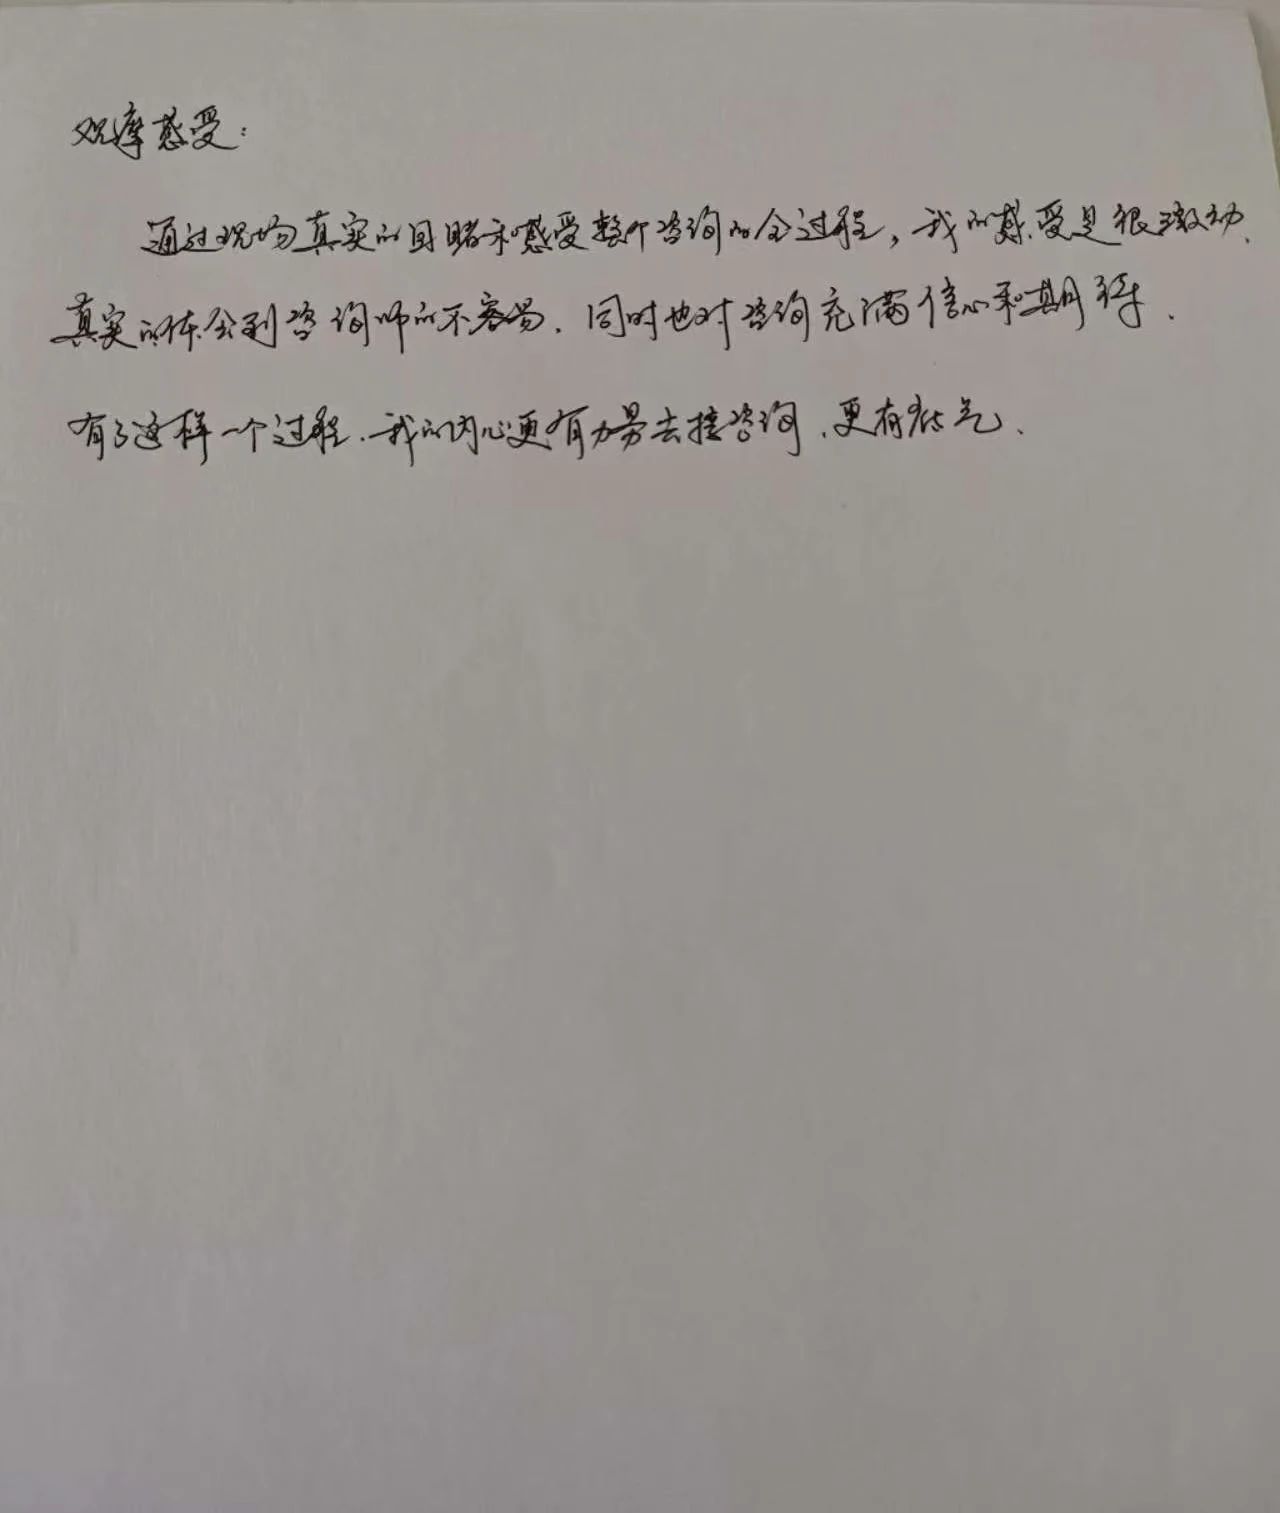 观摩感受：
通过现场真实的目睹和感受整个咨询的全过程，我的感受是很激动、
真实的体会到咨询师的不容易、同时也对咨询充满信心和期待．
有了这样一个过程、我的内心更有力量去接咨询、更有底气、